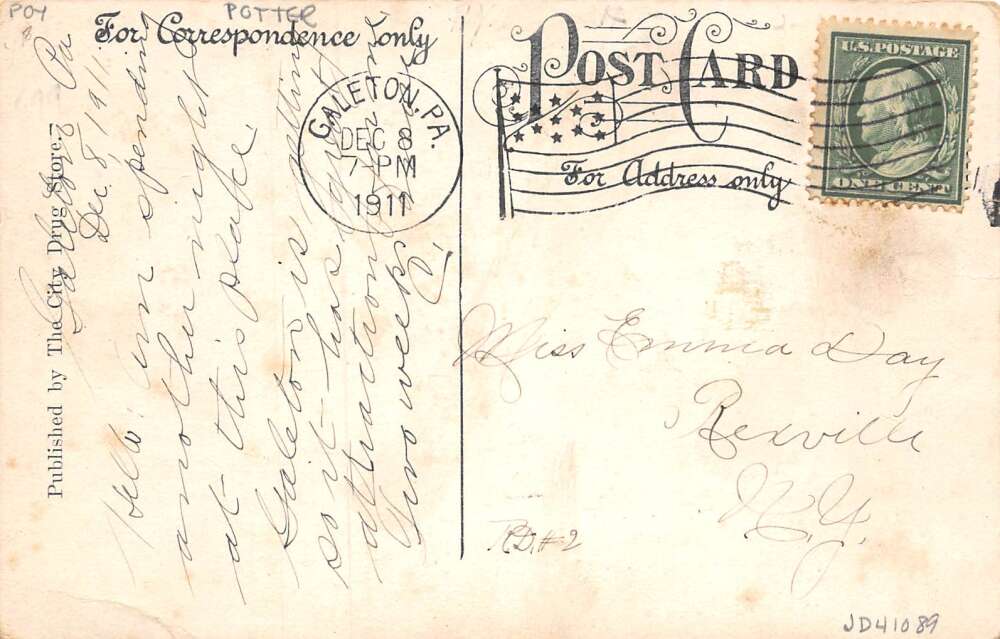 POY
POTTER
For Correspondence only
POST CARD
For Address only
U.S. POSTAGE
ONE CENT
GALETON, PA.
DEC 8
7-PM
1911
Published by The City Drug Store.
Galeton Pa
Dec. 8 1911
Hello: im spending
another night
at this place
Galeton is
so it has
attraction
Two weeks
Miss Emma Day
Rexville
N.Y.
R.D. #2
JD41089